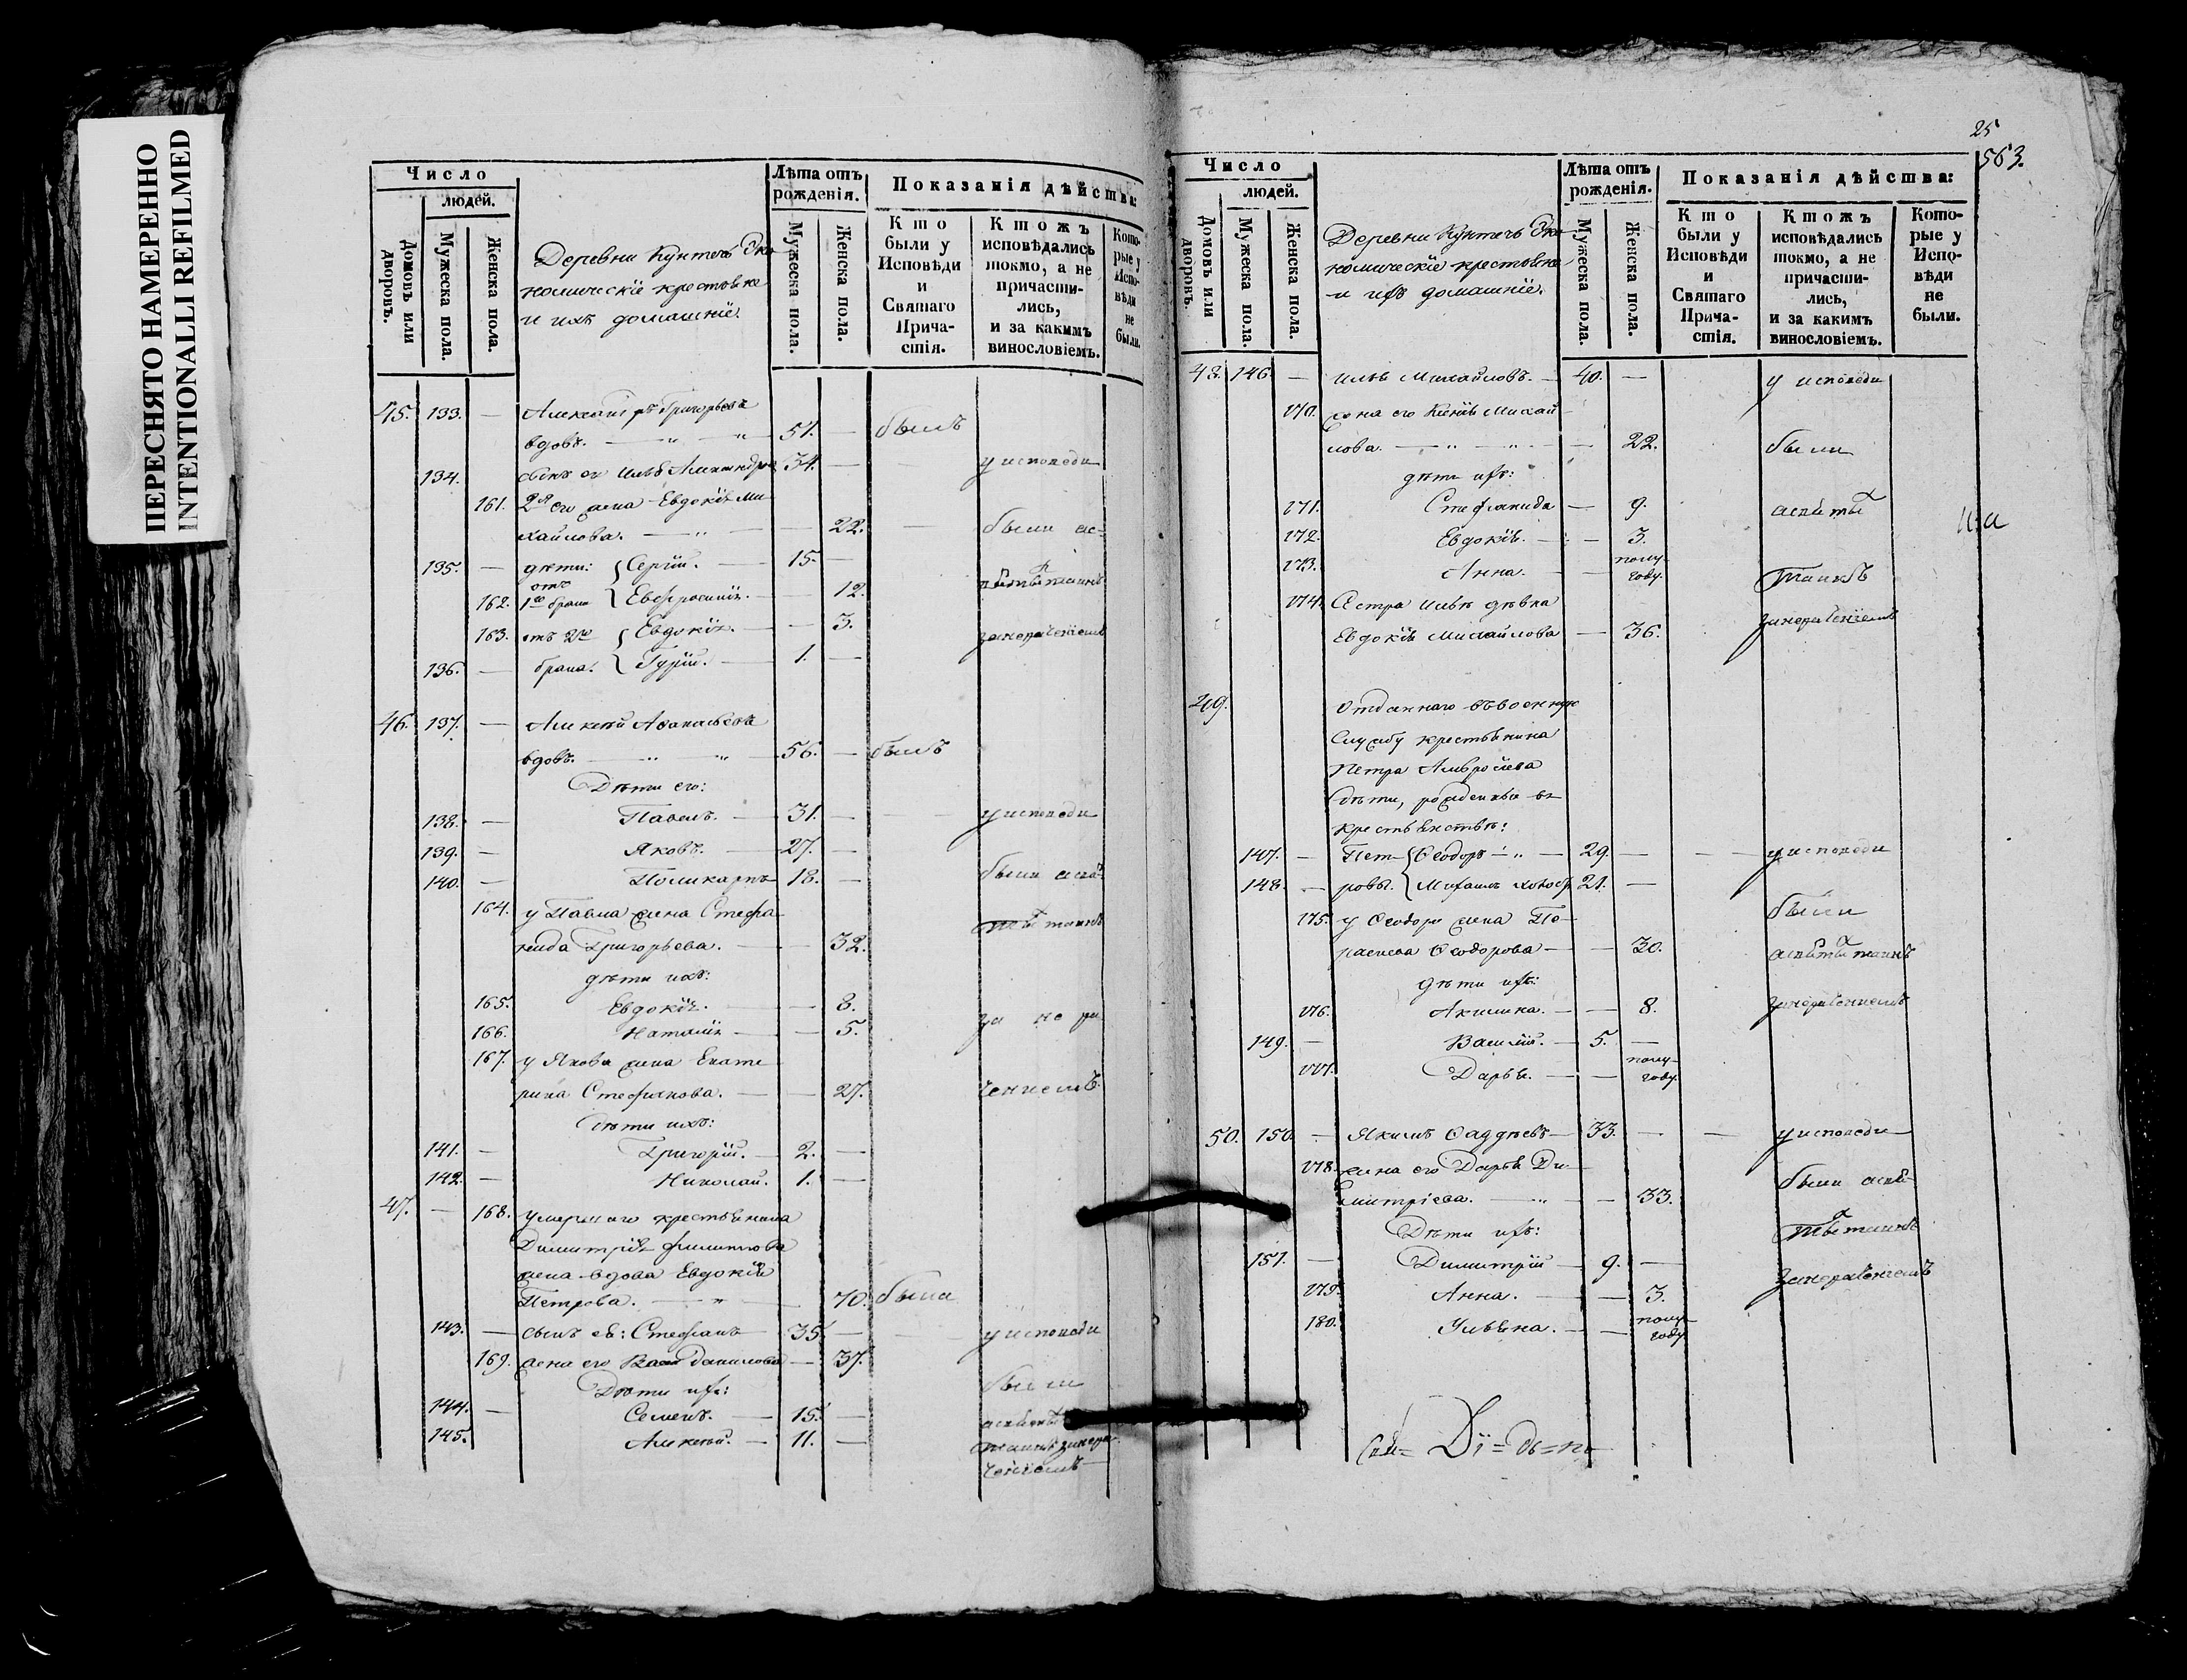 ПЕРЕСНЯТО НАМЕРЕННО
INTENTIONALLI REFILMED
Число
людей.
Домовъ или дворовъ.
Мужеска пола.
Женска пола.
Деревни Кунтечь Эко-
номическiе крестьяне
и ихъ домашнiе.
Лѣта отъ рожденiя.
Мужеска пола.
Женска пола.
Показанiя дѣйства:
Кто были у Исповѣди и Святаго Прича-стiя.
Ктожъ исповѣдались токмо, а не причасти-лись, и за какимъ винословiемъ.
Кото-рые у Испо-вѣди не были.
45. 133. — Григорьевъ
вдовъ. — „ — „ 51. — былъ
134. сынъ его Илья 34. — у исповеди
161. 2я его жена Евдокiя Ми
хайлова. — „ — — 22. — были
135. — дѣти: Сергiй. — 15. —
отъ
162. 1го брака Евфросинiя. — — 12.
163. отъ 2го Евдокiя. — — 3.
136. — брака. Гурiй. — 1. —
46. 137. — Алексей
вдовъ. — „ „ 56. — былъ
Дѣти его:
138. — Павелъ. — 31. — у исповеди
139. — Яковъ. — 27. —
140. — Поликарпъ 18. — были
164. у Павла жена Стефа
нида Григорьева. — — 32.
дѣти ихъ:
165. Евдокiя. — — 8.
166. Наталiя — — 5. за не ра
167. у Якова жена Екате
рина Стефанова. — — 27. ченiемъ.
Дѣти ихъ:
141. — Григорiй. — 2. —
142. — Николай. 1. —
47. — 168. умершаго крестьянина
Димитрiя Филиппова
жена вдова Евдокiя
Петрова. — „ — 70. была
143. — сынъ ея: Стефанъ 35. — у исповеди
169. жена его Данилова — 37.
Дѣти ихъ: были
144. — Семенъ. — 15. —
145. Алексей. — 11. —
25
563.
Число
людей.
Домовъ или дворовъ.
Мужеска пола.
Женска пола.
Деревни Кунтечь Эко-
номическiе крестьяне
и ихъ домашнiе.
Лѣта отъ рожденiя.
Мужеска пола.
Женска пола.
Показанiя дѣйства:
Кто были у Исповѣди и Святаго Прича-стiя.
Ктожъ исповѣдались токмо, а не причасти-лись, и за какимъ винословiемъ.
Кото-рые у Испо-вѣди не были.
48. 146. — Илья Михайловъ. — 40. — у исповеди
170. жена его Михай
лова. — „ — „ — — 22. были
дѣти ихъ:
171. Стефанида — 9.
172. Евдокiя. — — 3.
173. Анна. — — полу-
году.
174. Сестра Ильи дѣвка
Евдокiя Михайлова — 36.
49. Отданнаго въ военную
службу крестьянина
Петра Амвросiева
дѣти, рожденные въ
крестьянствѣ:
147. — Пет- Ѳеодоръ — „ — 29. — — у исповеди
148. — ровы. холост 21. —
175. у Ѳеодора жена Па- были
раскева Ѳеодорова — — 30.
дѣти ихъ:
176. Акилина. — — 8.
149. — Василiй. — 5. —
177. Дарья. — — полу-
году.
50. 150. — Якимъ Ѳаддѣевъ — 33. — — у исповеди
178. жена его Дарья Ди-
митрiева. — „ — — 33. были
Дѣти ихъ:
151. — Димитрiй — 9. —
179. Анна. — — 3.
180. Ульяна. — — полу-
году.